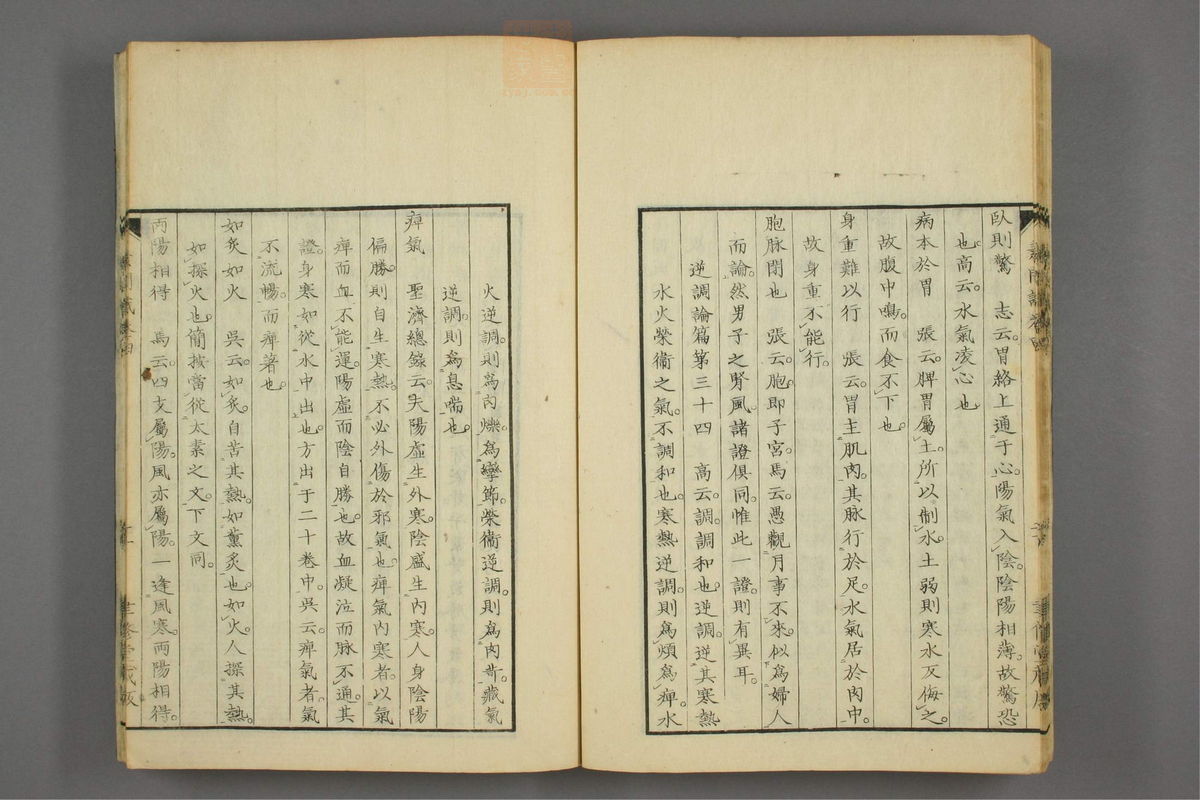 臥則驚　志云。胃絡上通于心。陽氣入陰。陰陽相薄。故驚恐
也。高云。水氣凌心也
病本於胃　張云。脾胃屬土。所以制水。土弱則寒水反侮之。
故腹中鳴。而食不下也。
身重難以行　張云。胃主肌肉。其脉行於足。水氣居於肉中。
故身重不能行。
胞脉閉也　張云。胞。即子宮。馬云。愚觀月事不來。似為婦人
而論。然男子之腎風。諸證俱同。惟此一證。則有異耳。
逆調論篇第三十四　高云。調。調和也。逆調。逆其寒熱
水火榮衞之氣。不調和也。寒熱逆調。則為煩為痺。水
火逆調。則為肉爍。為攣節。榮衞逆調。則為肉苛。藏氣
逆調。則為息喘也。
痺氣　聖濟總錄云。夫陽虛生外寒。陰盛生內寒。人身陰陽
偏勝。則自生寒熱。不必外傷於邪氣也。痺氣內寒者。以氣
痺而血不能運。陽虛而陰自勝也。故血凝泣而脉不通。其
證。身寒如從水中出也。方出于二十卷中。吳云。痺氣者。氣
不流暢。而痺著也。
如炙如火　吳云。如炙。自苦其熱。如薰炙也。如火。人探其熱。
如探火也。簡按當從太素之文。下文同。
兩陽相得　馬云。四支屬陽。風亦屬陽。一逢風寒。兩陽相得。